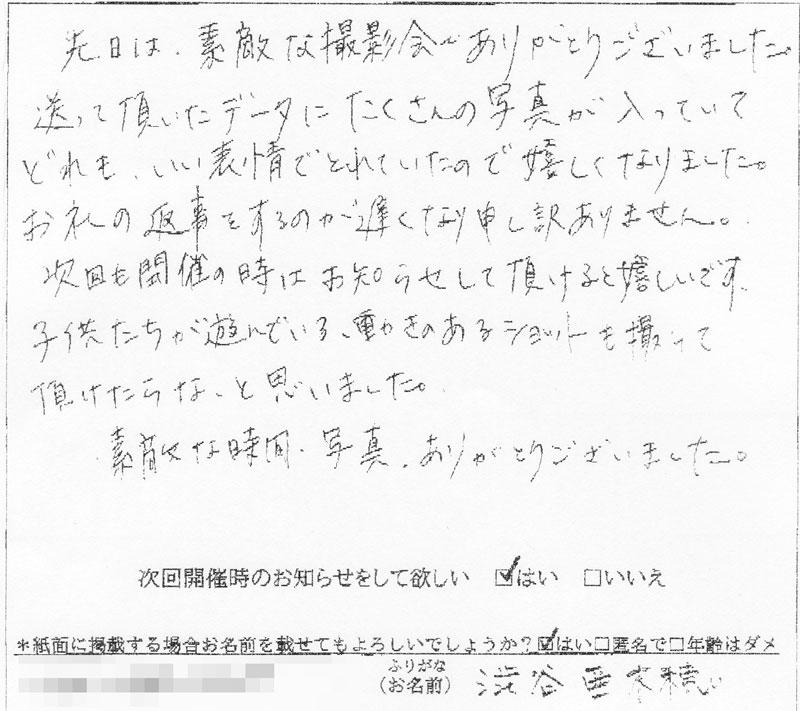 先日は、素敵な撮影会ありがとうございました。
送って頂いたデータにたくさんの写真が入っていて
どれも、いい表情でとれていたので嬉しくなりました。
お礼の返事をするのが遅くなり申し訳ありません。
次回も開催の時はお知らせして頂けると嬉しいです。
子供たちが遊んでいる、動きのあるショットも撮って
頂けたらな、と思いました。
素敵な時間、写真、ありがとうございました。
次回開催時のお知らせをして欲しい ☑はい □いいえ
*紙面に掲載する場合お名前を載せてもよろしいでしょうか?☑はい□匿名で□年齢はダメ
ふりがな
(お名前) 渋谷